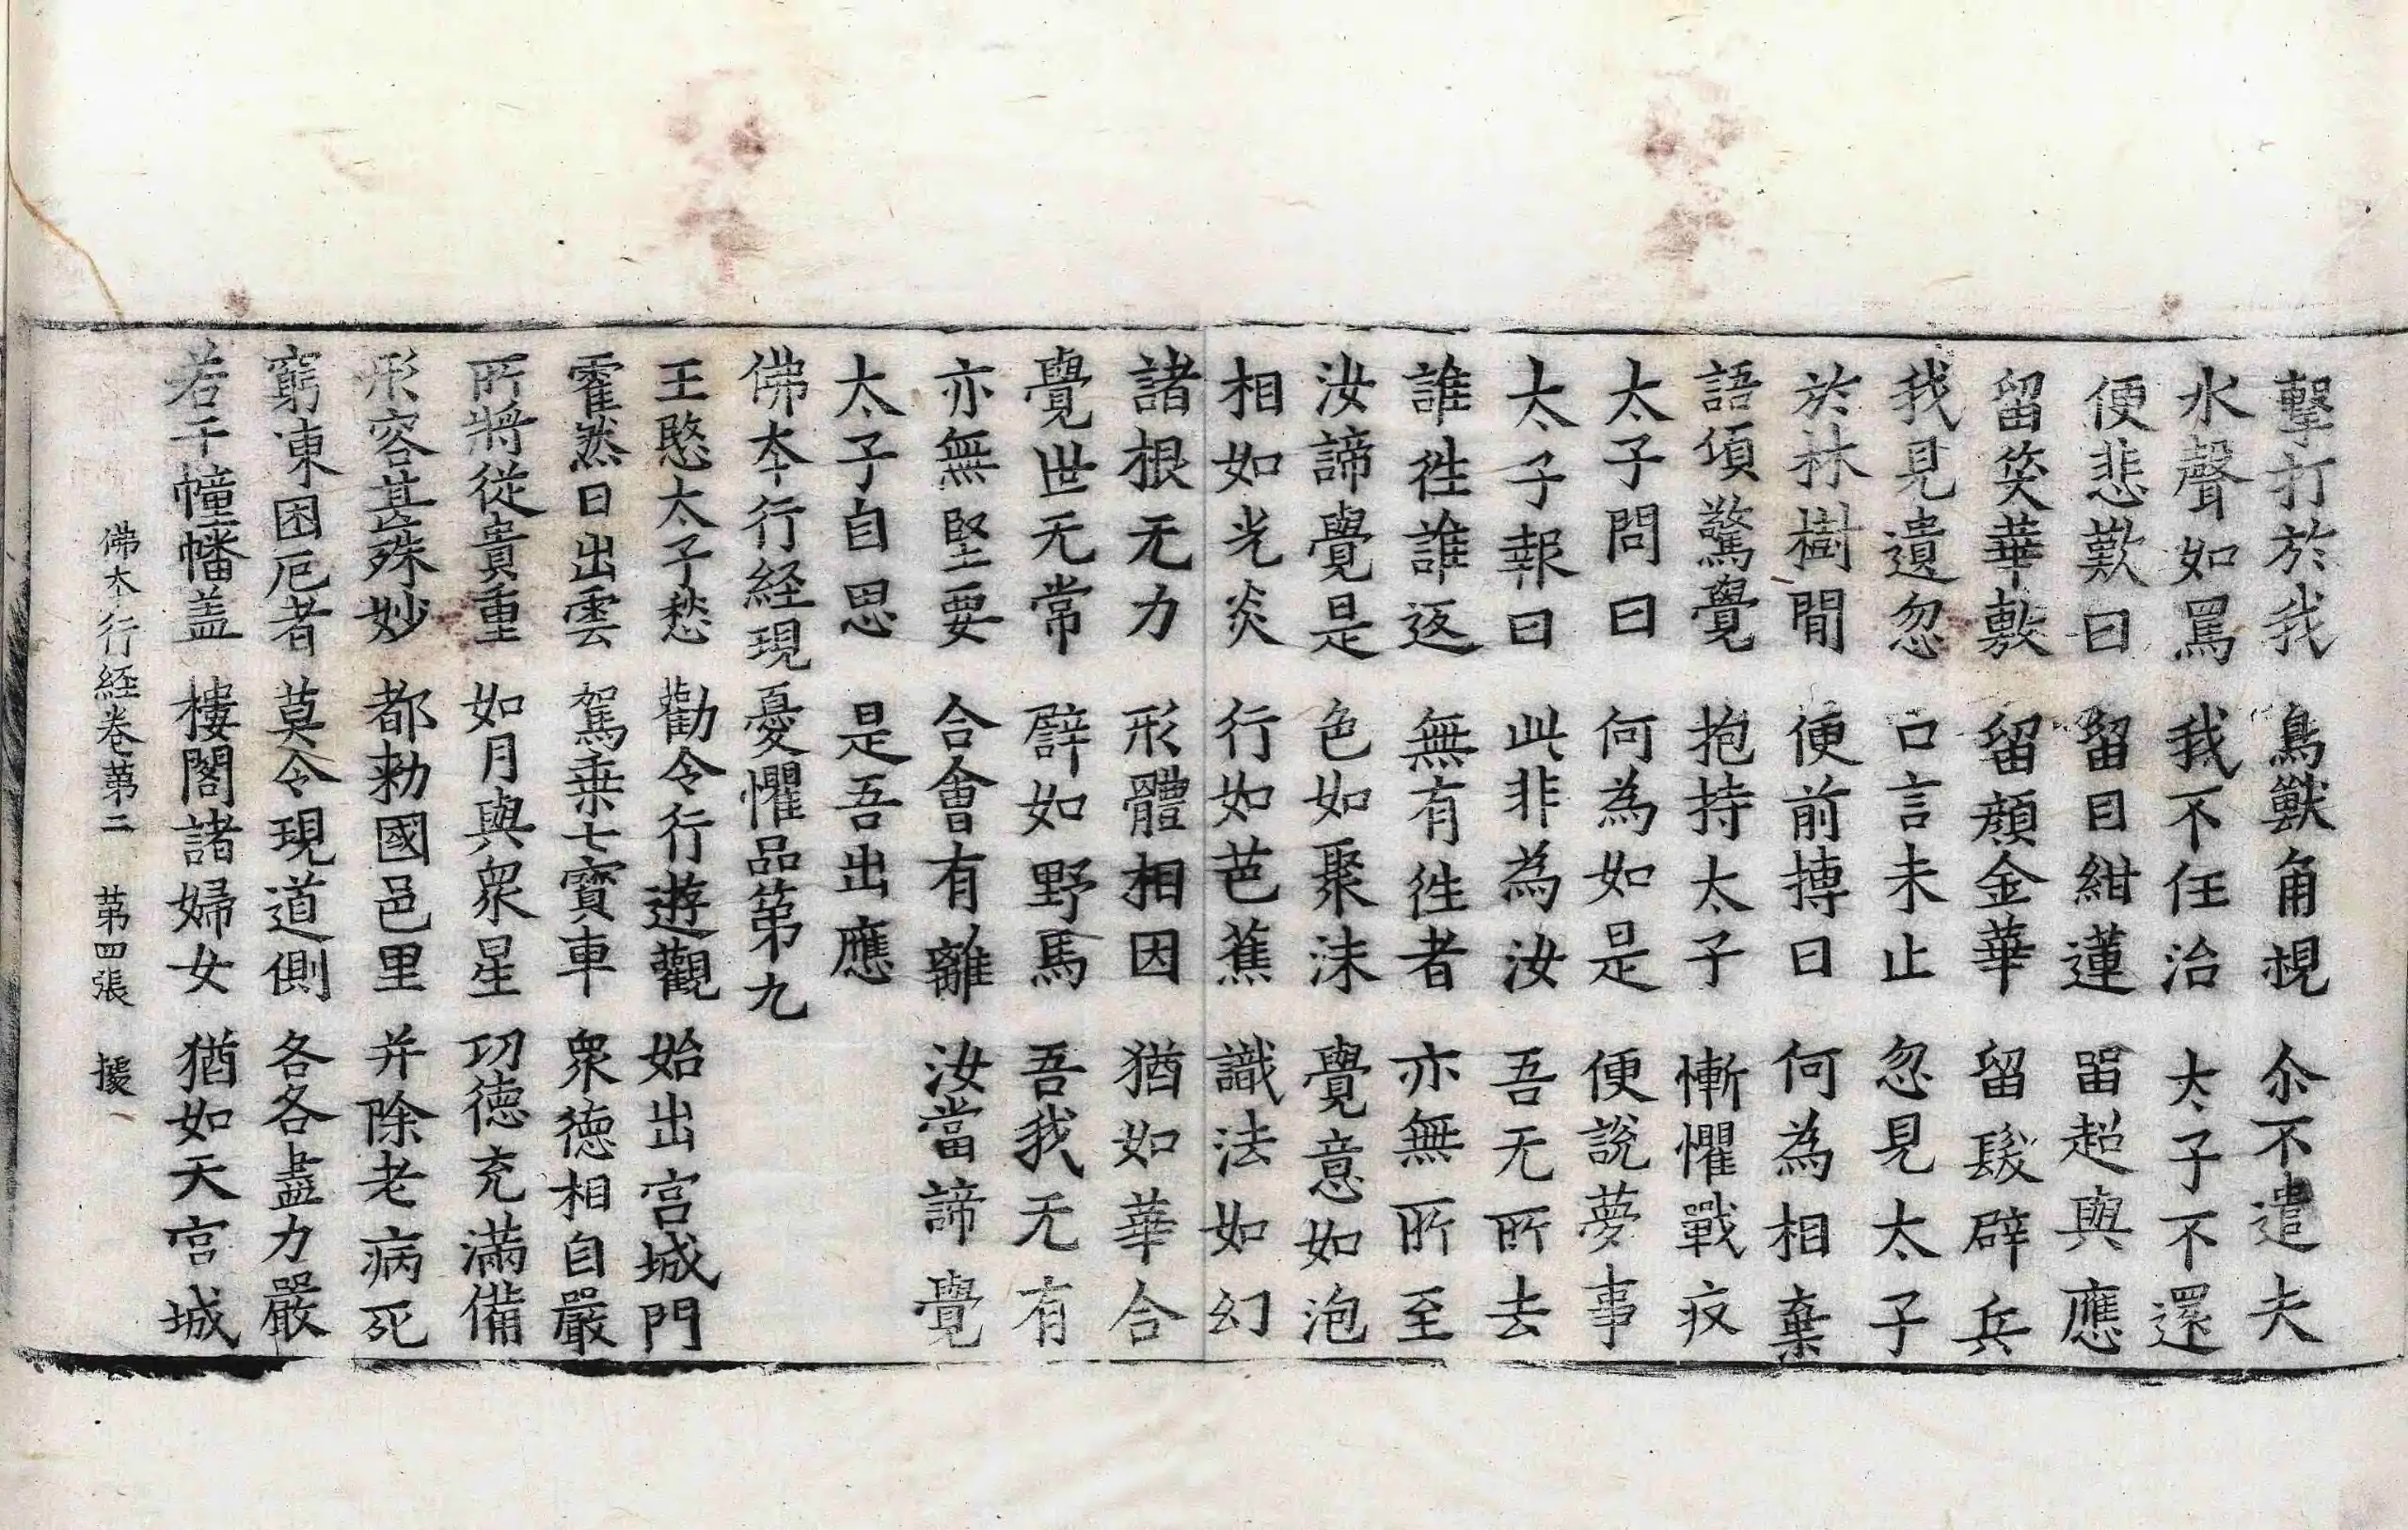 擊打於我 鳥獸角視 尒不遣夫
水聲如罵 我不任治 太子不還
便悲歎曰 留目紺蓮 留超與應
留笑華敷 留顔金華 留髮辟兵
我見遺忽 口言未止 忽見太子
於林樹間 便前摶曰 何為相棄
語頃驚覺 抱持太子 慚懼戰疚
太子問曰 何為如是 便說夢事
太子報曰 此非為汝 吾无所去
誰徃誰返 無有徃者 亦無所至
汝諦覺是 色如聚沫 覺意如泡
相如光炎 行如芭蕉 識法如幻
諸根无力 形體相因 猶如華合
覺世无常 辟如野馬 吾我无有
亦無堅要 合會有離 汝當諦覺
太子自思 是吾出應
佛夲行経現憂懼品第九
王愍太子愁 勸令行遊觀 始出宮城門
霍然日出雲 駕乗七寶車 衆德相自嚴
所將從貴重 如月與衆星 㓛德充滿備
形容甚殊妙 都勑國邑里 并除老病死
窮凍困厄者 莫令現道側 各各盡力嚴
若干幢幡盖 樓閣諸婦女 猶如天宮城
佛夲行経卷苐二 苐四張 據